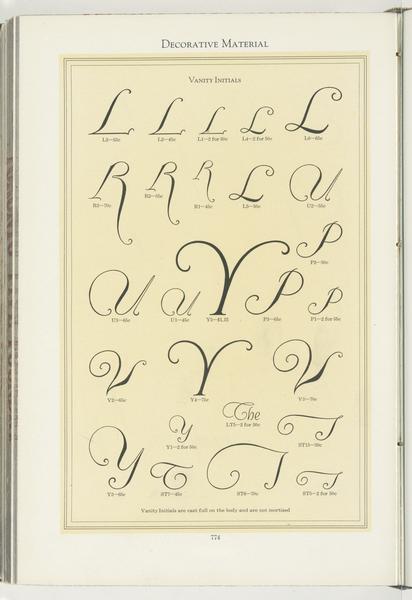 Decorative Material
Vanity Initials
L L L L L
L3—55c L2—45c L1—2 for 50c L4—2 for 50c L6—65c
R R R L U
R3—70c R2—55c R1—45c L5—50c U2—55c
P
P2—50c
U U Y P P
U3—65c U1—45c Y5—$1.25 P3—65c P1—2 for 55c
V Y V
V2—65c Y4—75c V3—70c
The
LT5—2 for 50c
Y T
Y1—2 for 50c ST15—50c
Y T T T
Y3—65c ST7—45c ST6—70c ST5—2 for 50c
Vanity Initials are cast full on the body and are not mortised
774